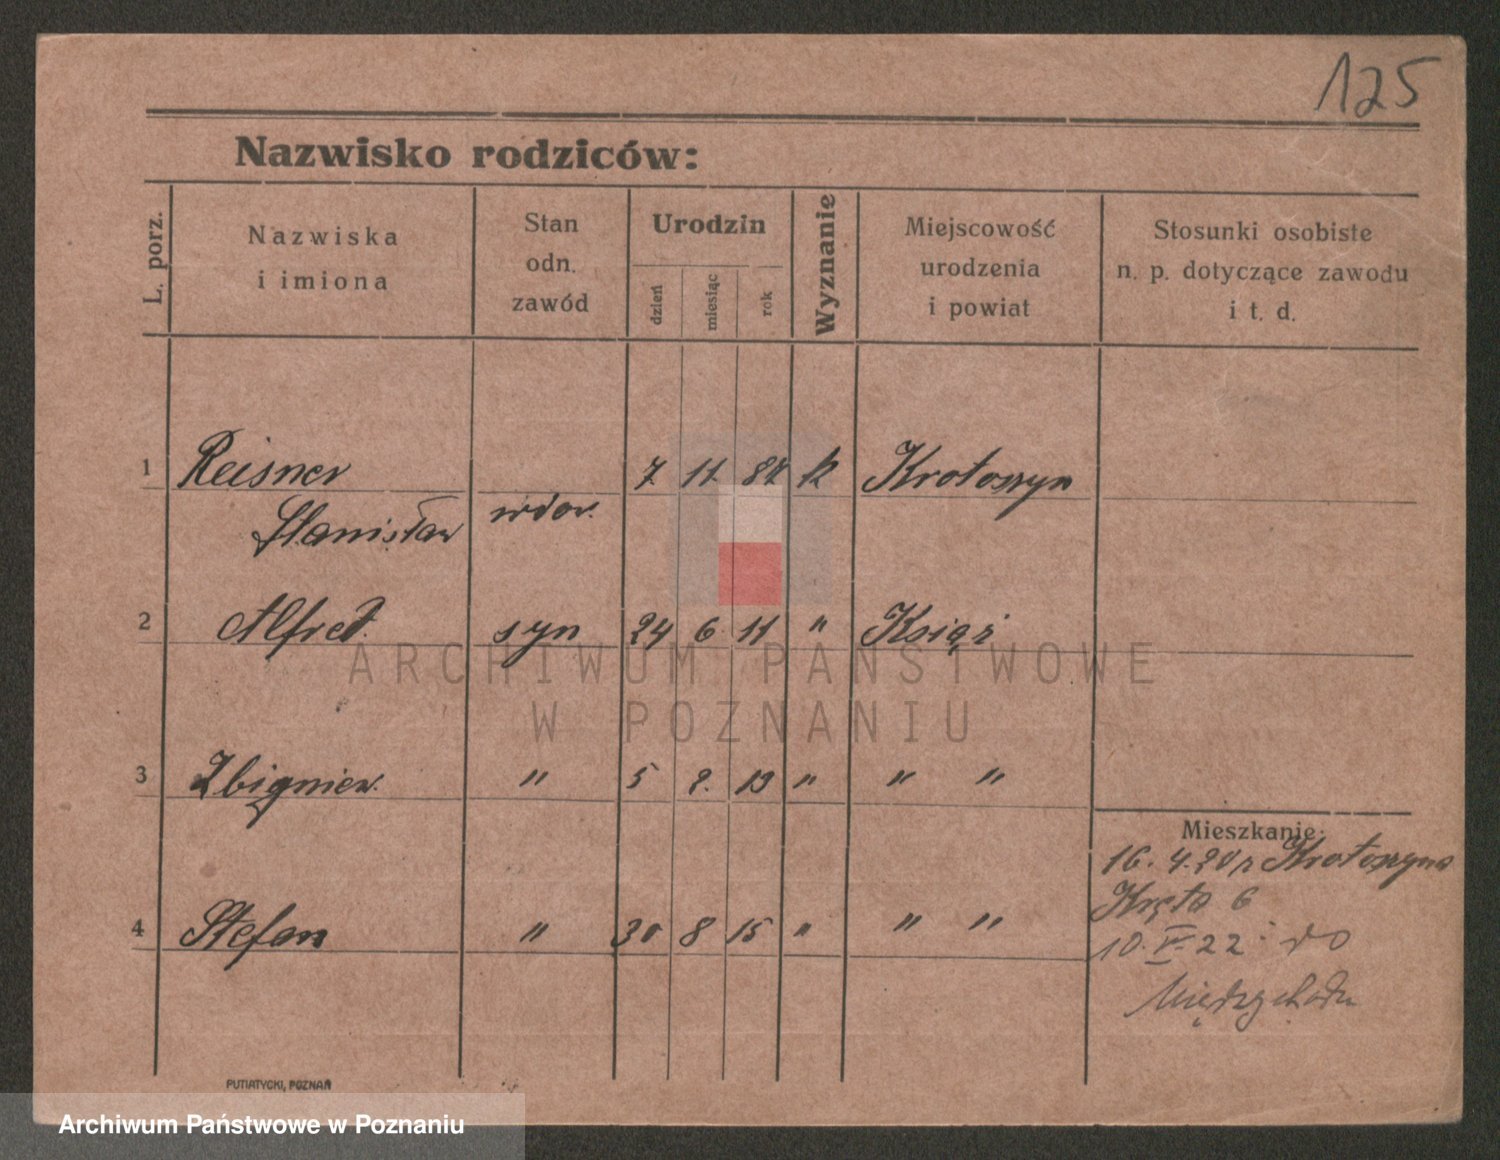 125
Nazwisko rodziców:
L. porz.
Nazwiska
i imiona
Stan
odn.
zawód
Urodzin
dzień
miesiąc
rok
Wyznanie
Miejscowość
urodzenia
i powiat
Stosunki osobiste
n. p. dotyczące zawodu
i t. d.
1 Reisner 7. 11. 87 k Krotoszyn
Stanisław wdow.
2 Alfred. syn 24 6 11 " Książ
ARCHIWUM PAŃSTWOWE
W POZNANIU
3 Zbigniew. " 5 2. 13 " " "
Mieszkanie:
16. 4. 20 z Krotoszyna
Kręta 6
4 Stefan " 30 8 15 " " "
10. V. 22 do
Międzychodu
PUTIATYCKI, POZNAŃ
Archiwum Państwowe w Poznaniu